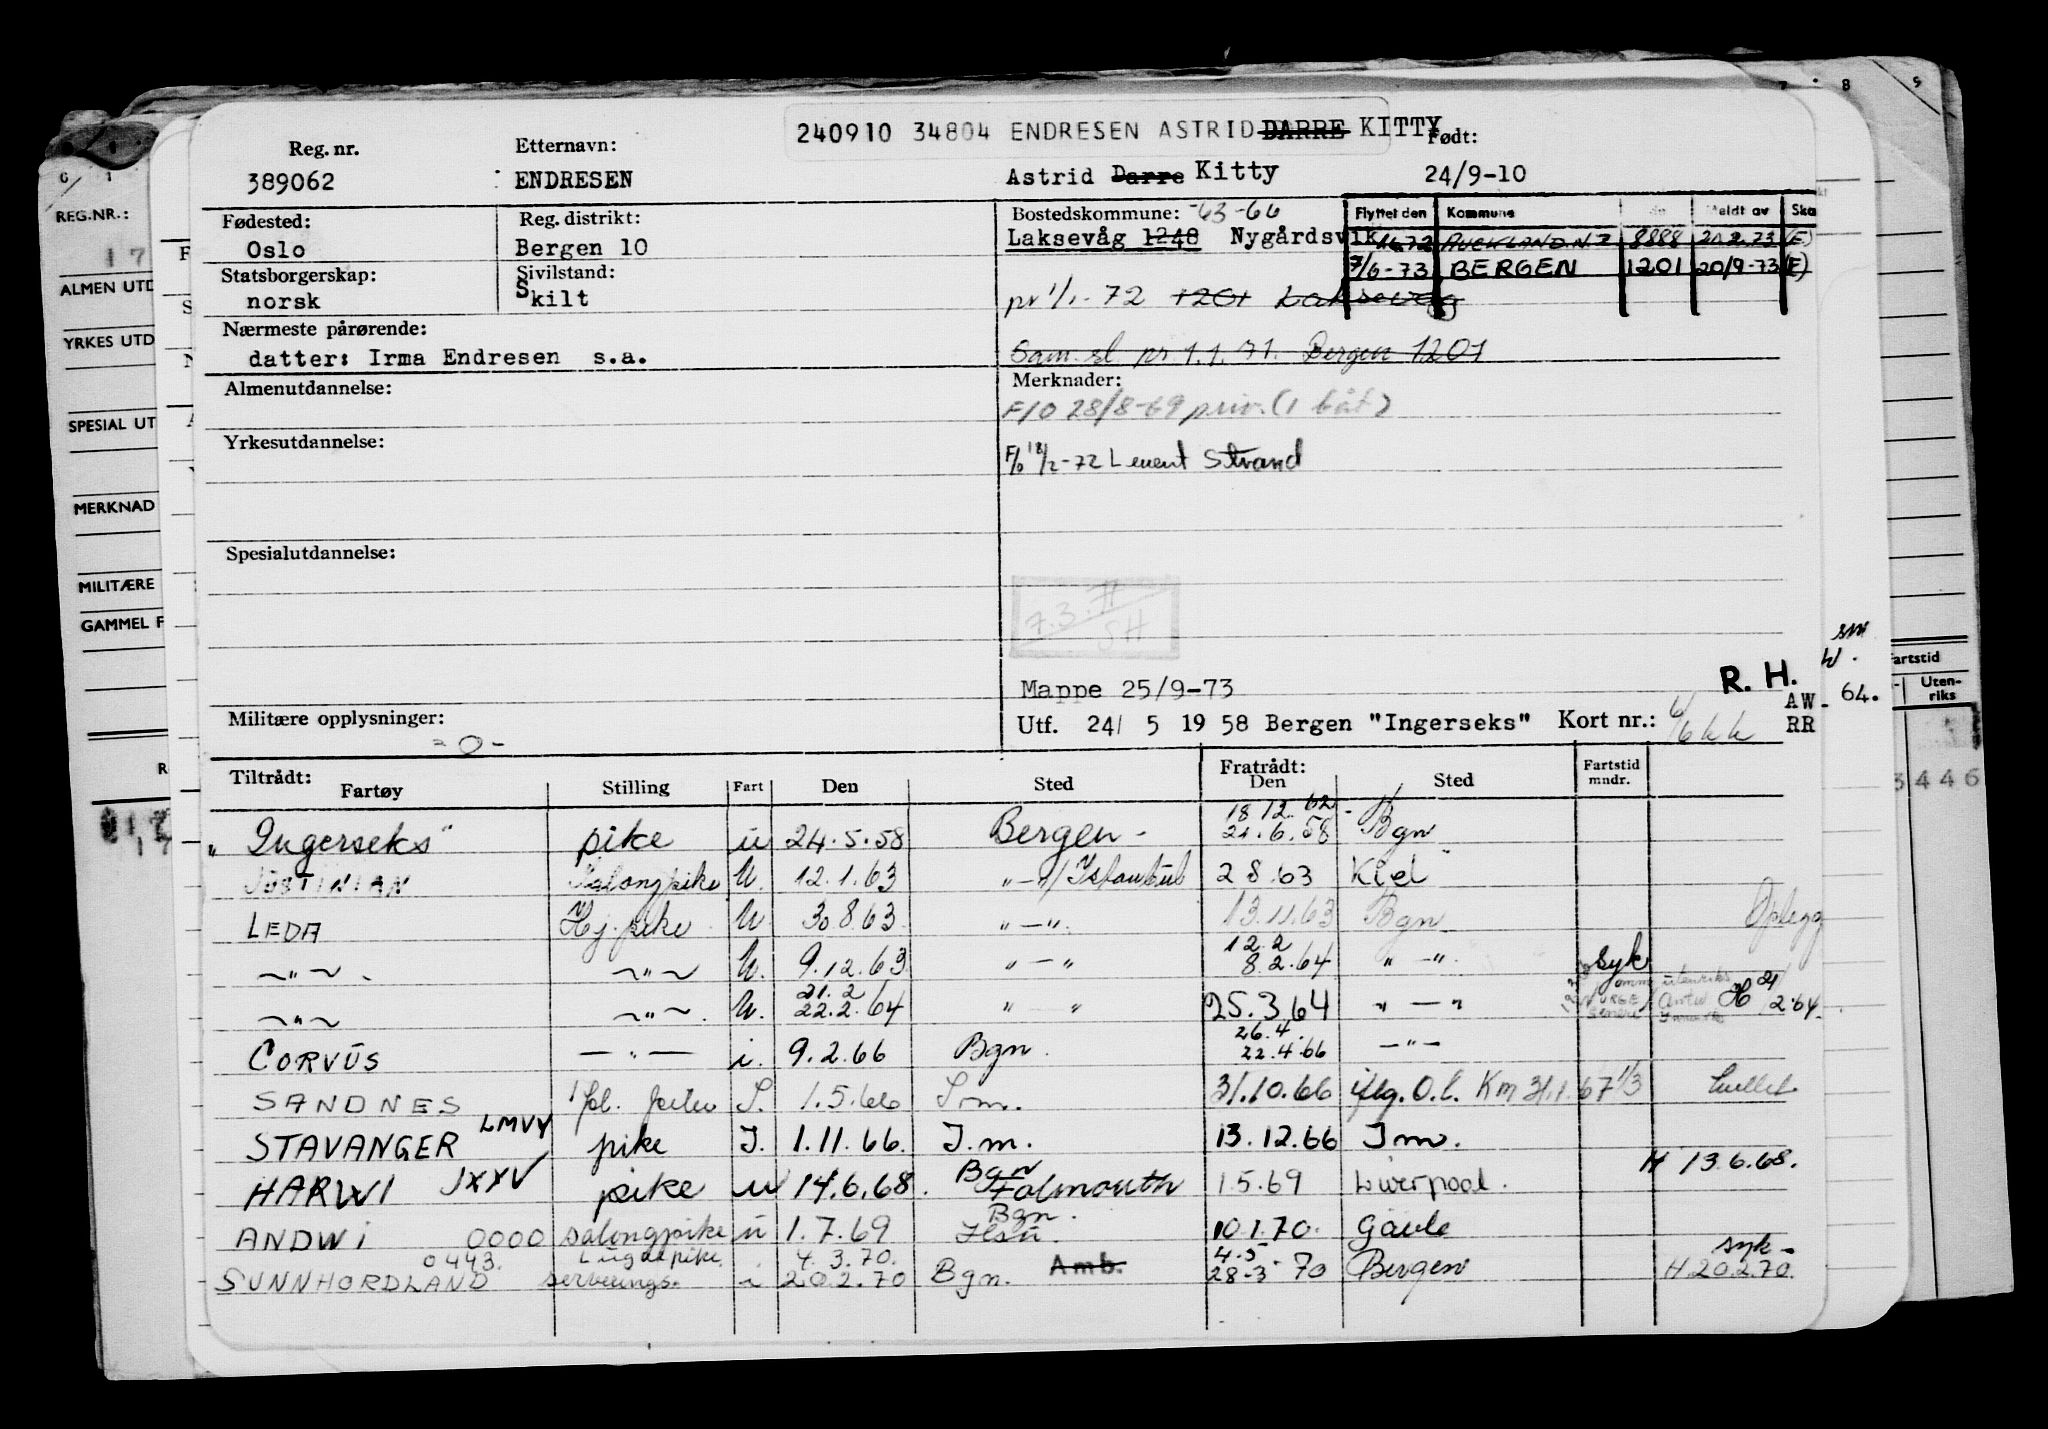 240910 34804 ENDRESEN ASTRID DARRE KITTY
Reg. nr. Etternavn: Født:
389062 ENDRESEN Astrid Darre Kitty 24/9-10
Fødested: Reg. distrikt: Bostedskommune: -63-66
Oslo Bergen 10 Laksevåg 1248 Nygårdsvik
Flyttet den Kommune Meldt av Ska
1672 AUCKLAND N.Z 8888 20.2.73 (E)
7/6-73 BERGEN 1201 20/9-73 (E)
Statsborgerskap: Sivilstand:
norsk Skilt
pr 1/1-72 1201 Laksevåg
Nærmeste pårørende:
datter: Irma Endresen s.a.
Sam. sl. pr. 1.1.71. Bergen 1201
Almenutdannelse: Merknader:
F/O 28/8-69 priv. (1 båt)
Yrkesutdannelse:
F/O 18/2-72 Lenent Strand
Spesialutdannelse:
7.3.
SH
R. H.
Mappe 25/9-73
Militære opplysninger:
= 0 -
Utf. 24/ 5 19 58 Bergen "Ingerseks" Kort nr.:
AW
RR
64.
Tiltrådt: Fartøy Stilling Fart Den Sted Fratrådt: Den Sted Fartstid mndr.
18.12.62
"Ingerseks" pike u 24.5.58 Bergen - 21.6.58 Bgn
JUSTINIAN Salongpike U. 12.1.63 "-"/Istanbul 2 8.63 Kiel
LEDA Kj. pike U 30.8.63 "-". 13.11.63 Bgn Oplegg
12.2
~"~. ~"~ U. 9.12.63 "-" 8.2.64 "-". syk
21.2
~"~ ~"~. U. 22.2.64 " " 25.3.64 "-" H 21/2.64.
26.4.
CORVUS -"- i. 9.2.66 Bgn. 22.4.66 -"-
SANDNES S. 1.5.66 S.m. 31.10.66 iflg. O.l. Km 31.1.67 1/3
STAVANGER LMVY pike I. 1.11.66. I.m. 13.12.66 I m.
H 13.6.68.
HARWI JXXV pike u 14.6.68. Bgn Falmouth 1.5.69 Liverpool.
Bgn.
ANDWI 0000 salongpike u 1.7.69 10.1.70. Gävle
0443. Lugarpike. 4.3.70. 4.5 syk-
SUNNHORDLAND serverings. i 20.2.70 Bgn. Amb. 28-3-70 Bergen H 20.2.70.
REG.NR.:
17
ALMEN UTD
YRKES UTD
SPESIAL UT
MERKNAD
MILITÆRE
GAMMEL F
artstid
Uten-
riks
3446